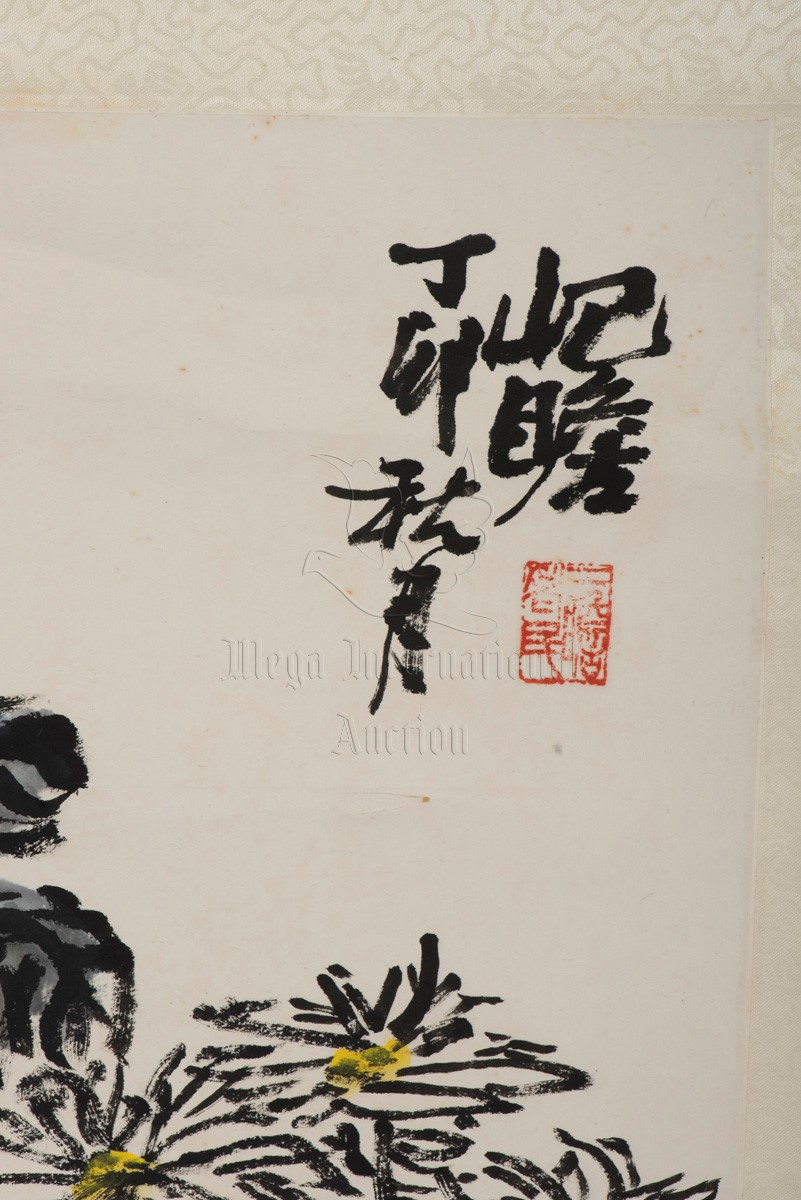 屺瞻
丁卯
秋月
Mega International
Auction